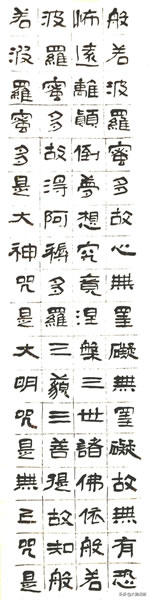 般若波羅蜜多故心無罣礙無罣礙故無有恐
怖遠離顛倒夢想究竟涅槃三世諸佛依般若
波羅蜜多故得阿耨多羅三藐三菩提故知般
若波羅蜜多是大神咒是大明咒是無上咒是